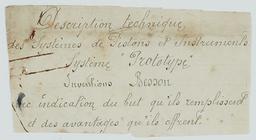 Description technique
des Systèmes de Pistons et Instruments
Système "Prototype"
Inventions Besson
avec indication du but qu'ils remplissent
et des avantages qu'ils offrent.